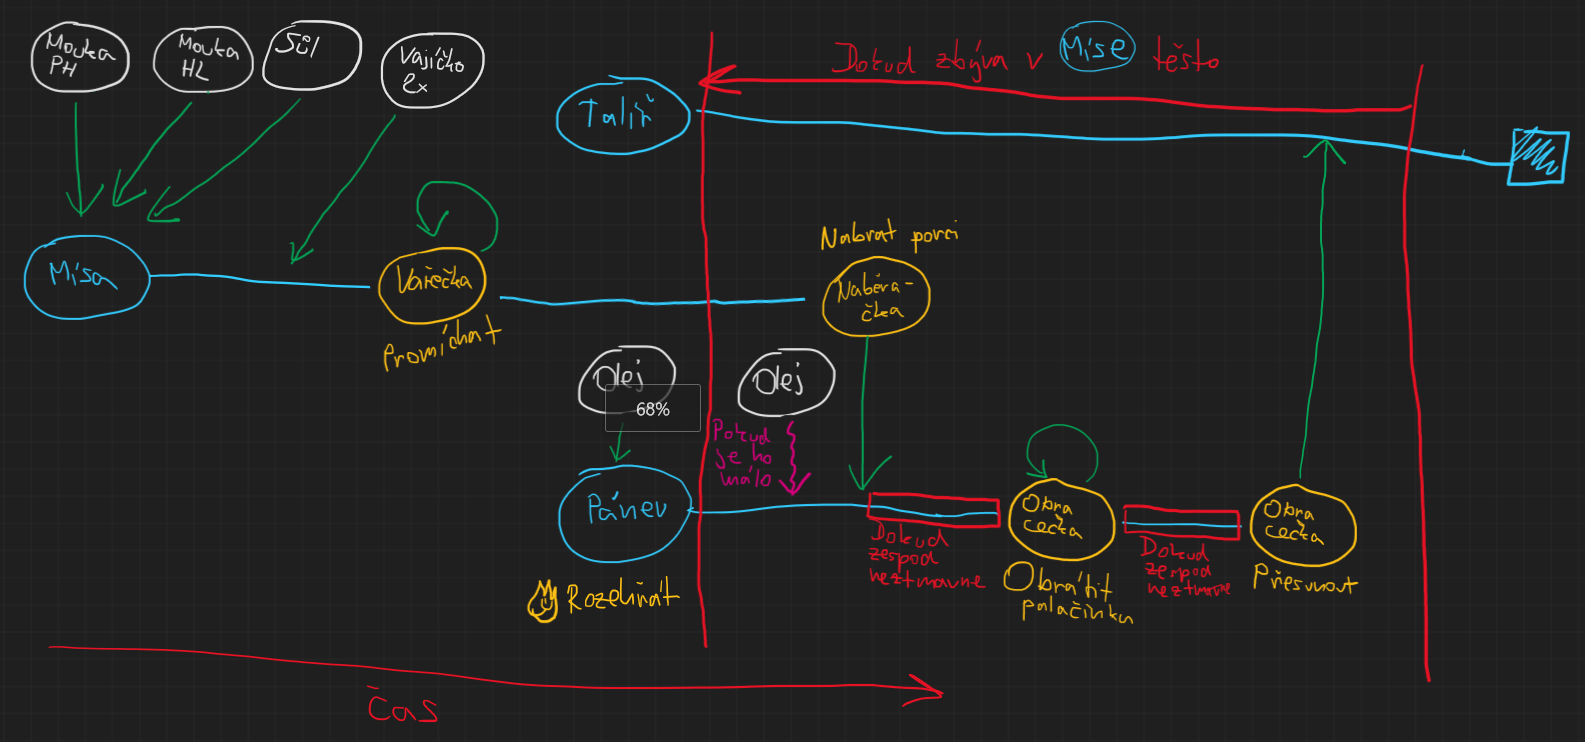 Mouka
PH
Mouka
HL
Sůl
Vajíčko
2x
Dokud zbývá v Míse těsto
Talíř
Mísa
Vařečka
Promíchat
Nabrat porci
Naběra-
čka
Olej
68%
Olej
Pokud
je ho
málo
Pánev
Rozehřát
Dokud
zespod
neztmavne
Obra
cečka
Obrátit
palačinku
Dokud
zespod
neztmavne
Obra
cečka
Přesunout
Čas